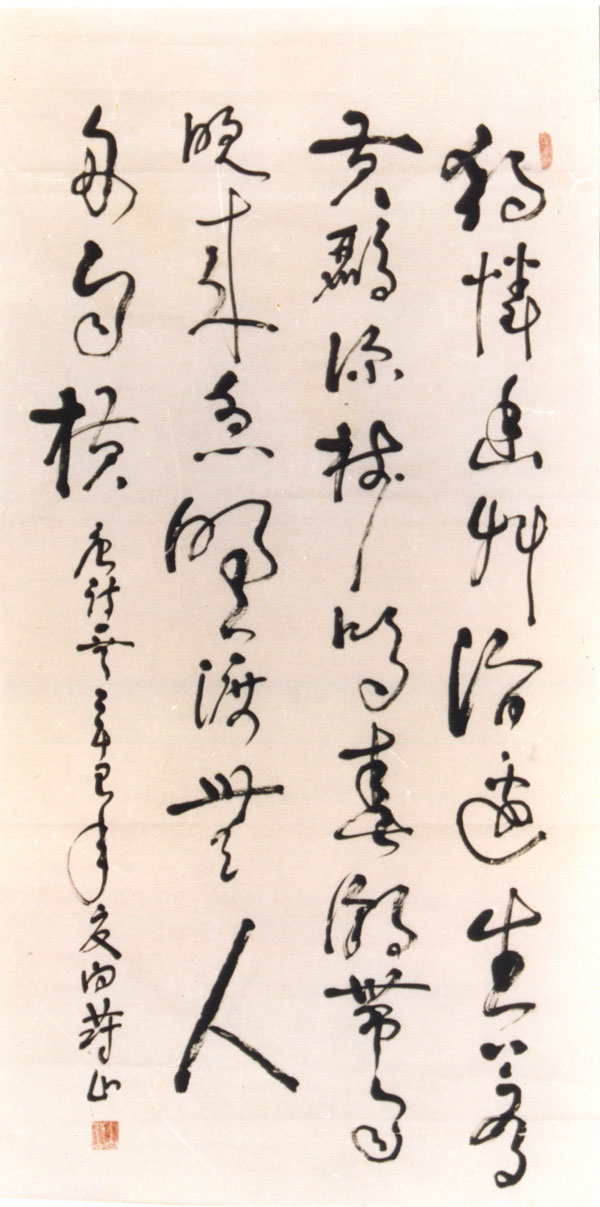 獨憐幽艸澗邊生上有
黃鸝深樹鳴春潮帶雨
晚來急野渡無人
舟自橫
唐詩辛巳年